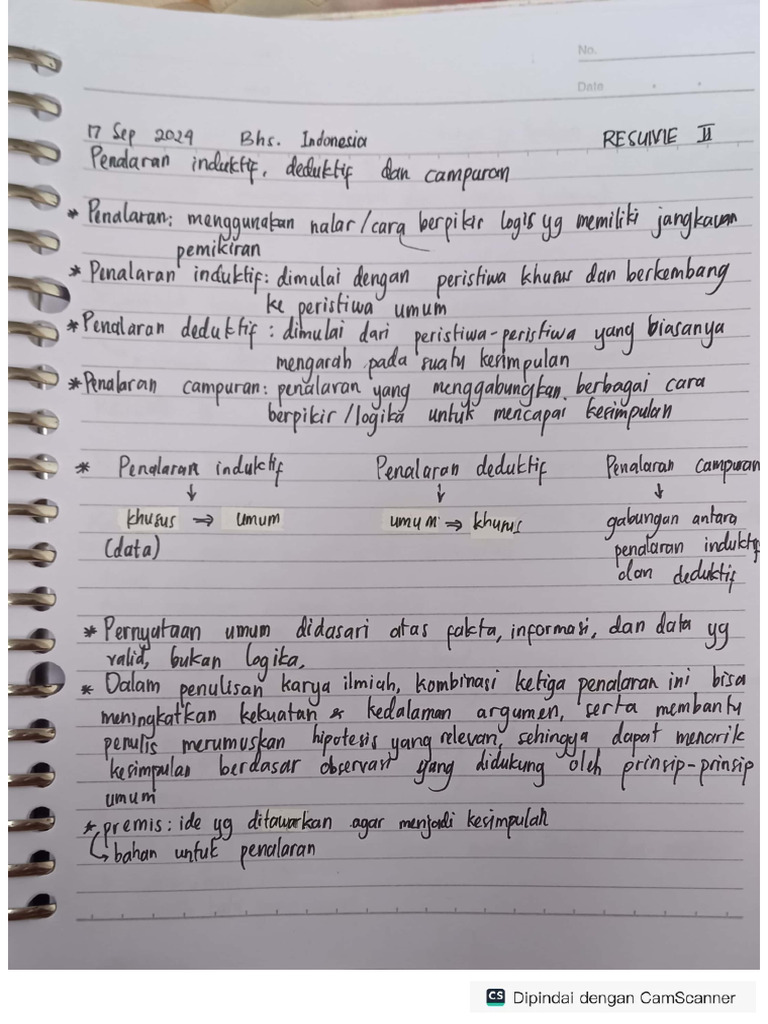 No.
Date
17 Sep 2024 Bhs. Indonesia RESUME II
Penalaran induktif, deduktif dan campuran
* Penalaran: menggunakan nalar/cara berpikir logis yg memiliki jangkauan
pemikiran
* Penalaran induktif: dimulai dengan peristiwa khusus dan berkembang
ke peristiwa umum
* Penalaran deduktif: dimulai dari peristiwa-peristiwa yang biasanya
mengarah pada suatu kesimpulan
* Penalaran campuran: penalaran yang menggabungkan berbagai cara
berpikir/logika untuk mencapai kesimpulan
* Penalaran induktif Penalaran deduktif Penalaran campuran
↓ ↓ ↓
khusus → umum umum → khusus gabungan antara
(data) penalaran induktif
dan deduktif
* Pernyataan umum didasari atas fakta, informasi, dan data yg
valid, bukan logika.
* Dalam penulisan karya ilmiah, kombinasi ketiga penalaran ini bisa
meningkatkan kekuatan & kedalaman argumen, serta membantu
penulis merumuskan hipotesis yang relevan, sehingga dapat menarik
kesimpulan berdasar observasi yang didukung oleh prinsip-prinsip
umum
* premis: ide yg ditawarkan agar menjadi kesimpulan
↳ bahan untuk penalaran
CS Dipindai dengan CamScanner